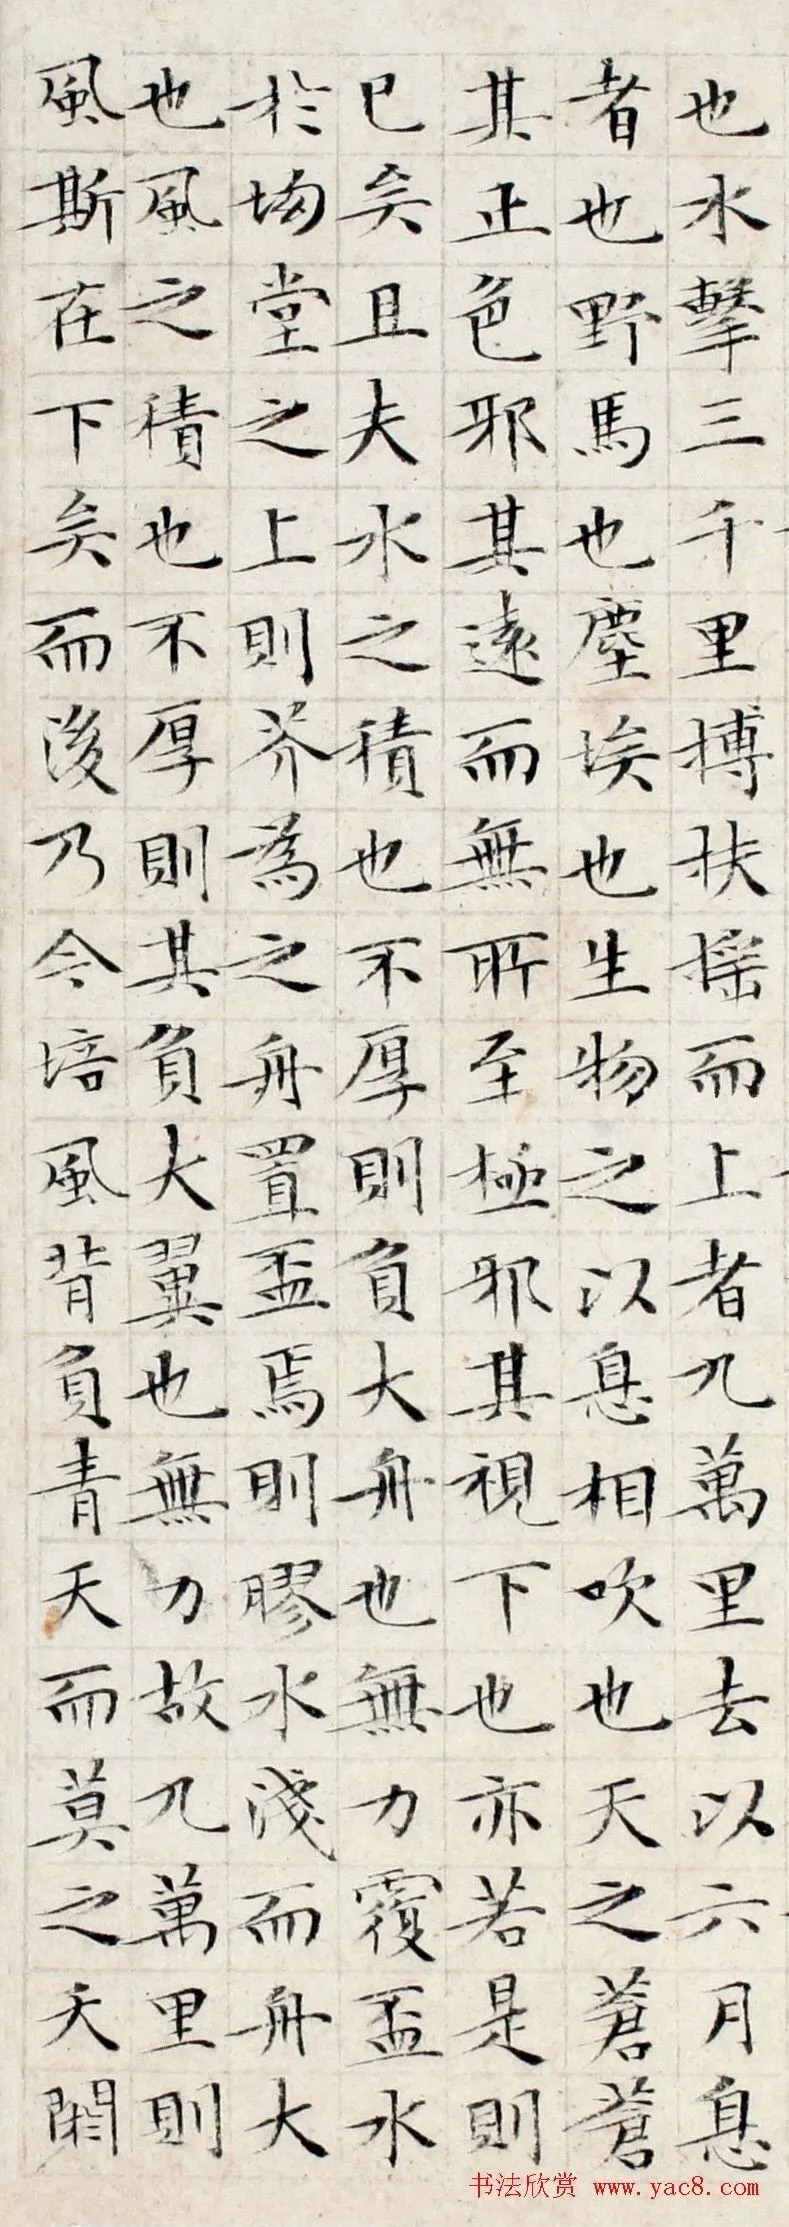 也水擊三千里摶扶搖而上者九萬里去以六月息
者也野馬也塵埃也生物之以息相吹也天之蒼蒼
其正色邪其遠而無所至極邪其視下也亦若是則
已矣且夫水之積也不厚則負大舟也無力覆盃水
於坳堂之上則芥為之舟置盃焉則膠水淺而舟大
也風之積也不厚則其負大翼也無力故九萬里則
風斯在下矣而後乃今培風背負青天而莫之夭閼
书法欣赏 www.yac8.com